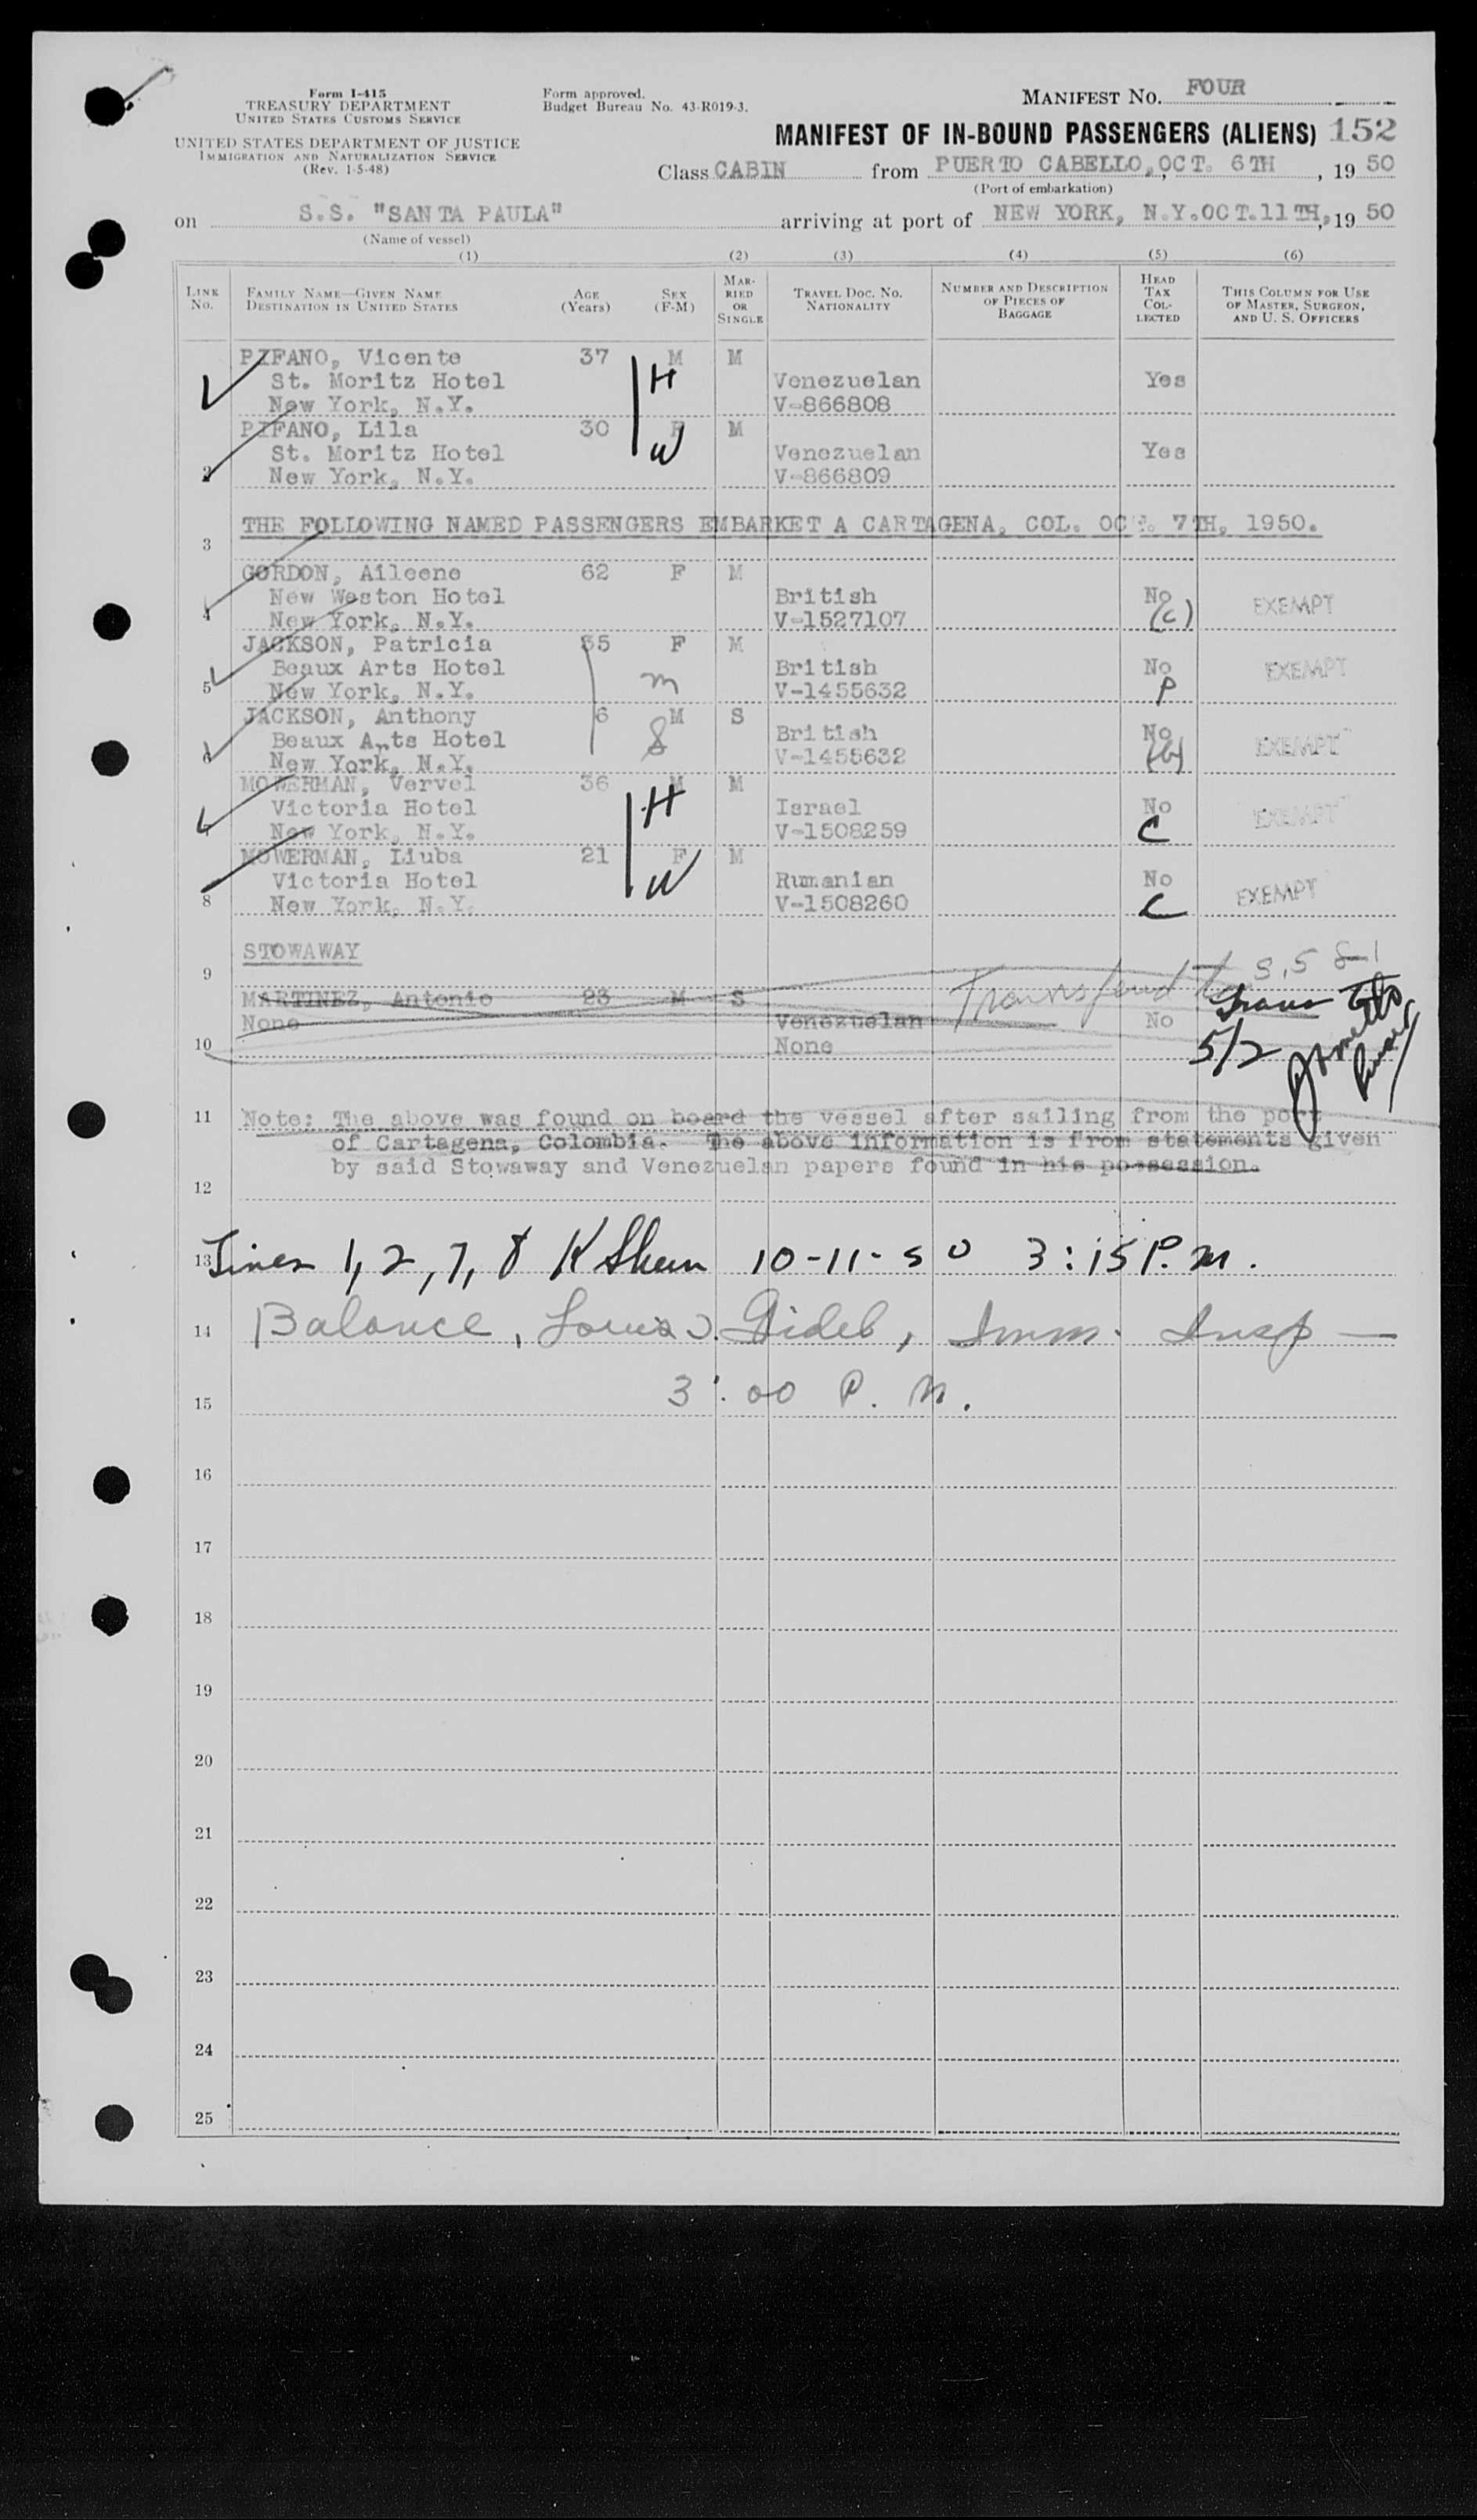 Form I-415
TREASURY DEPARTMENT
UNITED STATES CUSTOMS SERVICE
UNITED STATES DEPARTMENT OF JUSTICE
IMMIGRATION AND NATURALIZATION SERVICE
(Rev. 1-5-48)
Form approved.
Budget Bureau No. 43-R019-3.
MANIFEST NO. FOUR
MANIFEST OF IN-BOUND PASSENGERS (ALIENS) 152
Class CABIN from PUERTO CABELLO, OCT. 6TH, 1950
(Port of embarkation)
on S.S. "SANTA PAULA" arriving at port of NEW YORK, N.Y. OCT. 11TH, 1950
(Name of vessel)
(1) (2) (3) (4) (5) (6)
LINK No. FAMILY NAME—GIVEN NAME DESTINATION IN UNITED STATES AGE (Years) SEX (F-M) MARRIED OR SINGLE TRAVEL DOC. NO. NATIONALITY NUMBER AND DESCRIPTION OF PIECES OF BAGGAGE HEAD TAX COLLECTED THIS COLUMN FOR USE OF MASTER, SURGEON, AND U. S. OFFICERS
PIFANO, Vicente 37 M M
St. Moritz Hotel H Venezuelan Yes
New York, N.Y. V-866808
PIFANO, Lila 30 F M
St. Moritz Hotel W Venezuelan Yes
2 New York, N.Y. V-866809
THE FOLLOWING NAMED PASSENGERS EMBARKET A CARTAGENA, COL. OCT. 7TH, 1950.
3
GORDON, Aileene 62 F M
New Weston Hotel British No EXEMPT
4 New York, N.Y. V-1527107 (C)
JACKSON, Patricia 35 F M
Beaux Arts Hotel British No EXEMPT
5 New York, N.Y. m V-1455632 P
JACKSON, Anthony 6 M S
Beaux Arts Hotel British No EXEMPT
6 New York, N.Y. V-1455632
MOWERMAN, Vervel 36 M M
Victoria Hotel H Israel No EXEMPT
7 New York, N.Y. V-1508259 C
MOWERMAN, Liuba 21 F M
Victoria Hotel W Rumanian No EXEMPT
8 New York, N.Y. V-1508260 C
STOWAWAY
9
MARTINEZ, Antonio 23 M S
None Venezuelan No
10 None 5/2
11 Note: The above was found on board the vessel after sailing from the port
of Cartagena, Colombia. The above information is from statements given
by said Stowaway and Venezuelan papers found in his possession.
12
13 Lines 1, 2, 7, 8 K Shea 10-11-50 3:15 P.M.
14 Balance, Louis Imm. Insp —
15 3:00 P.M.
16
17
18
19
20
21
22
23
24
25